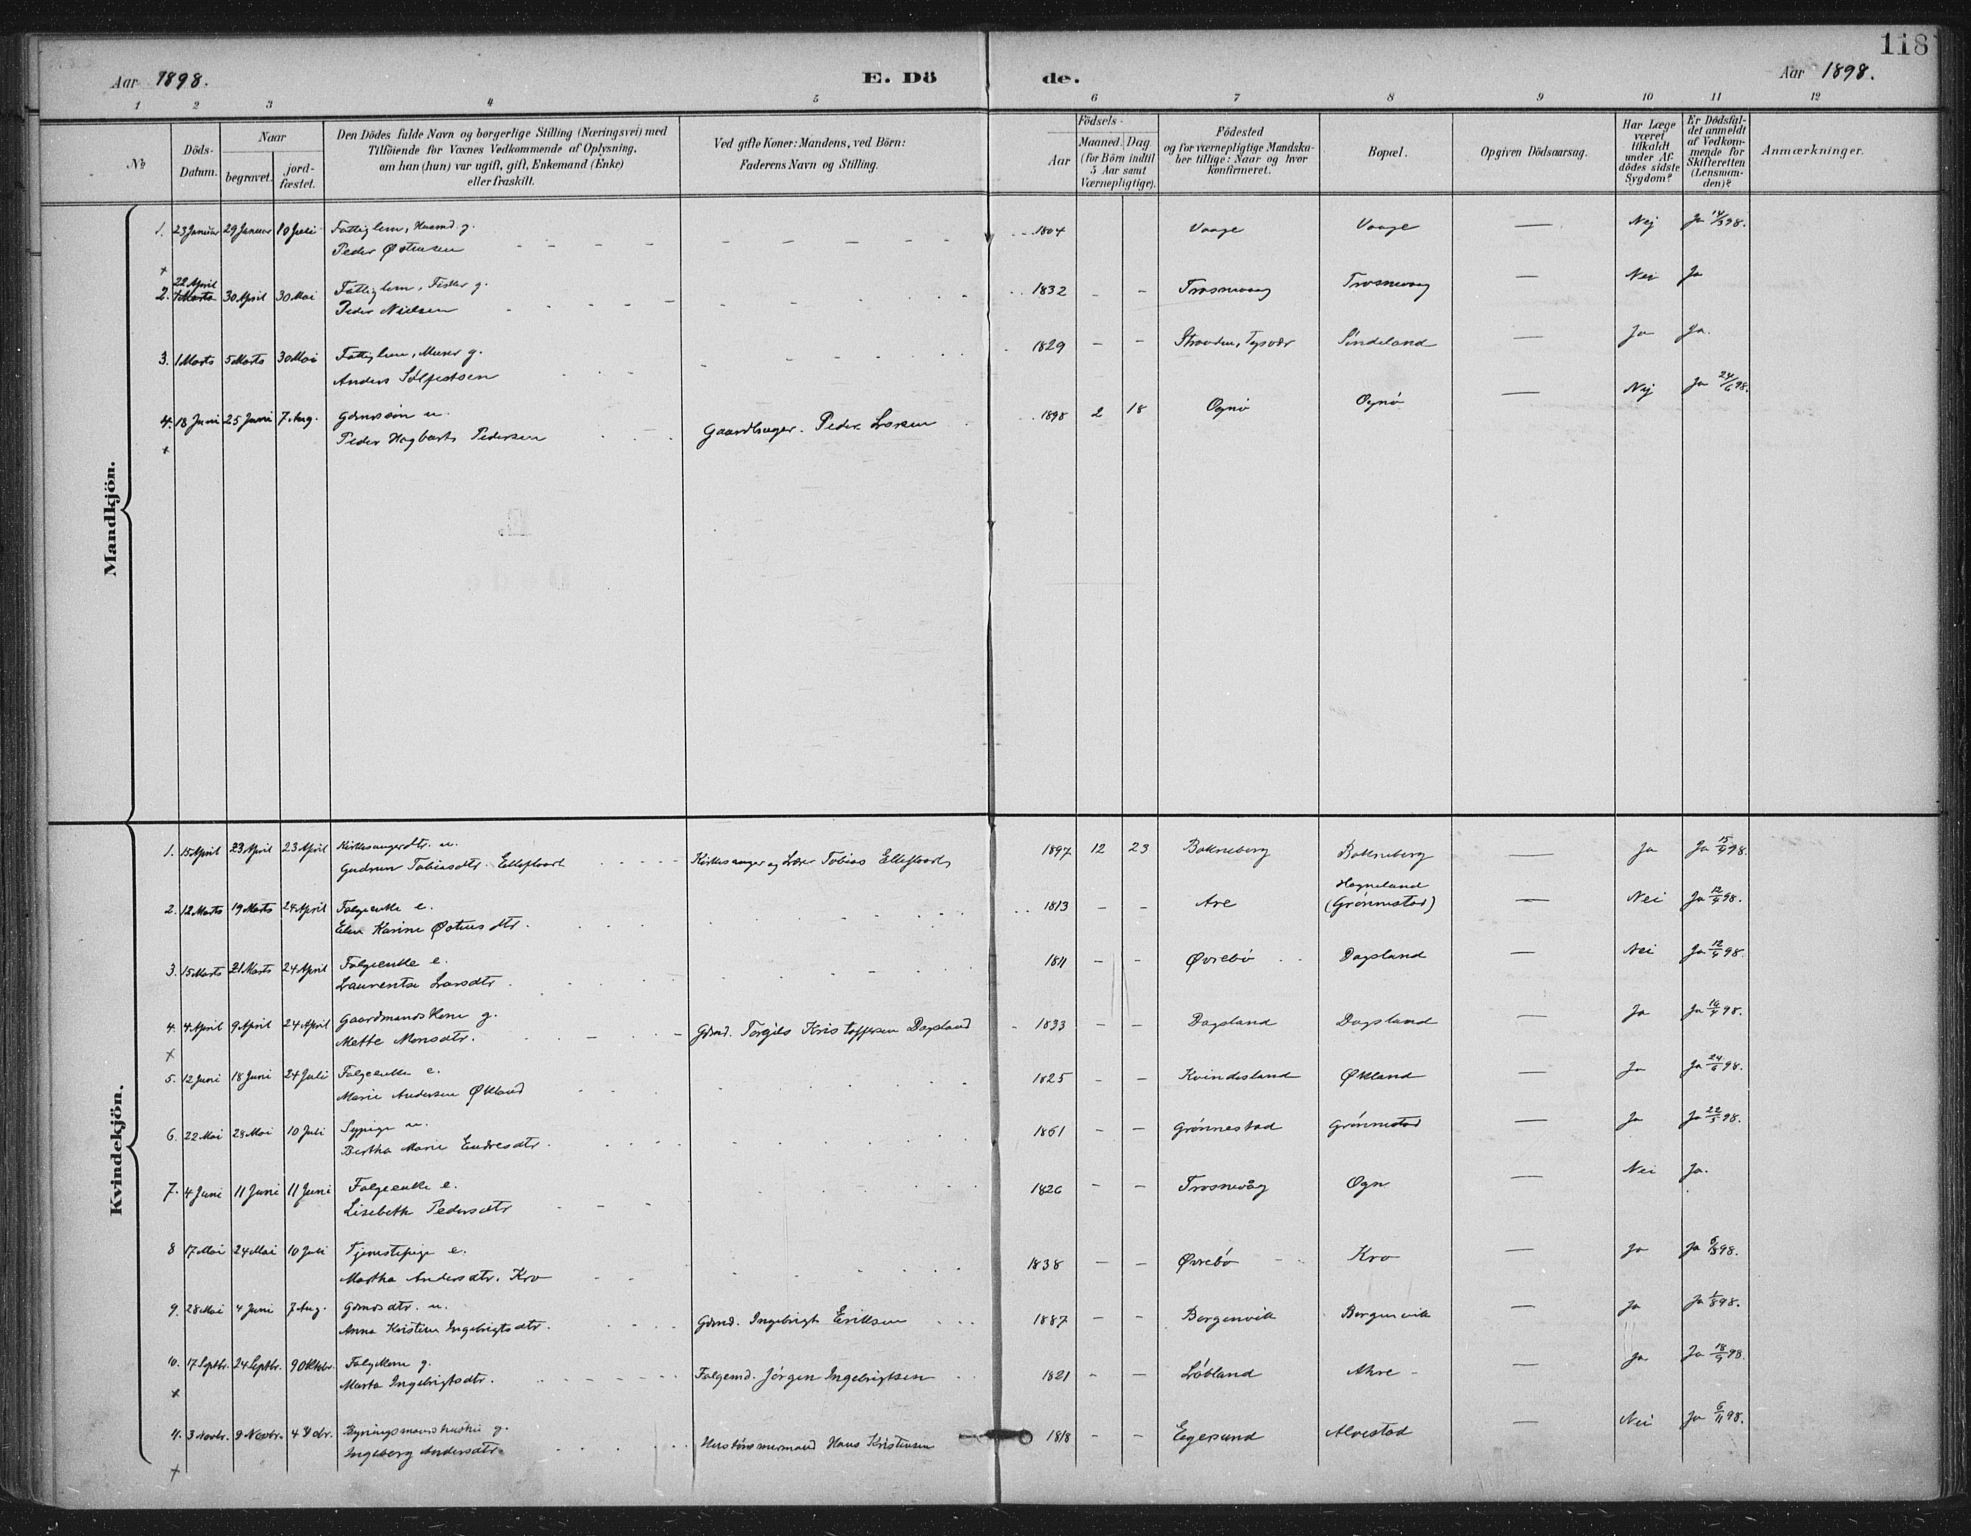 118
Aar 1898. E. Dö de. Aar 1898.
1 2 3 4 5 6 7 8 9 10 11 12
№ Döds-Datum. Naar begravet. jord-fæstet. Den Dödes fulde Navn og borgerlige Stilling (Næringsvei) med Tilföiende for Voxnes Vedkommende af Oplysning, om han (hun) var ugift, gift, Enkemand (Enke) eller fraskilt. Ved gifte Koner: Mandens, ved Börn: Faderens Navn og Stilling. Födsels- Aar Maaned. Dag (for Börn indtil 5 Aar samt Værnepligtige). Födested og for værnepligtige Mandskaber tillige: Naar og hvor konfirmeret. Bopæl. Opgiven Dödsaarsag. Har Læge været tilkaldt under Afdödes sidste Sygdom? Er Dödsfaldet anmeldt af Vedkommende for Skifteretten (Lensmanden)? Anmærkninger.
Mandkjön.
1. 23 Januar 29 Januar 10 Juli Fattiglem, Husmd. g. 1804 Vaage Vaage — Nej Ja 14/3 98.
Peder Østensen
+
22 April
2. 1 Marts 30 April 30 Mai Fattiglem, Fisker g. 1832 - - Trosnevaag Trosnevaag — Nei Ja
Peder Nielsen
3. 1 Marts 5 Marts 30 Mai Fattiglem, Murer g. 1829 - - Straaden, Tysvær Søndeland — Ja Ja.
Anders Sølfestsen
4. 18 Juni 25 Juni 7 Aug. Gdmdssøn u. 1898 2 18 Ognø Ognø — Nej Ja 24/6 98.
+ Peder Hagbarth Pedersen Gaardbruger Peder Larsen
Kvindekjön.
1. 15 April 23 April 23 April Kirkesangerdtr. u. 1897 12 23 Bokneberg Bokneberg — Ja Ja 15/4 98.
Gudrun Tobiasdtr. Kirkesanger og Lærer Tobias
2. 12 Marts 19 Marts 24 April Folgeenke e. 1813 - - Are Hogneland (Grønnestad) — Nei Ja 12/4 98.
Elen Karine Østensdtr.
3. 15 Marts 21 Marts 24 April Folgeenke e. 1811 - - Øvrebø Dagsland — Nei Ja 12/4 98.
Laurentse Larsdtr.
4. 4 April 9 April 24 April Gaardmandskone g. 1833 - - Dagsland Dagsland — Ja Ja 14/4 98.
+ Mette Monsdtr. Gdmd. Torgils Kristoffersen Dagsland
5. 12 Juni 18 Juni 24 Juli Folgeenke e. 1825 - - Kvindesland Økland — Ja Ja 24/6 98.
Marie Andersen Økland
6. 22 Mai 28 Mai 10 Juli Sypige u. 1861 - - Grønnestad Grønnestad — Ja Ja 22/5 98.
Bertha Marie Endresdtr.
7. 4 Juni 11 Juni 11 Juni Folgeenke e. 1826 - - Trosnevåg Ogn — Nei Ja.
Lisebeth Pedersdtr
8 17 Mai 24 Mai 10 Juli Tjenestepige e. 1838 - - Øvrebø Kro — Ja Ja
Martha Andersdtr. Kro
9. 28 Mai 4 Juni 7 Aug. Gdmdsdtr. u. 1887 - - Borgenvik Borgenvik — Ja Ja 1/8 98.
Anna Kristine Ingebrigtsdtr. Gdmd. Ingebrigt Eriksen
10. 17 Septbr. 24 Septbr. 9 Oktobr. Folgekone g. 1821 - - Løbland Ahre — Ja Ja 18/9 98.
+ Marta Ingebrigtsdtr. Folgemd. Jørgen Ingebrigtsen
11. 3 Novbr. 9 Novbr. 4 Dcbr. g. 1818 - - Egersund Alvestad — Nei Ja 6/11 98.
+ Ingeborg Andersdtr. Hans Kristensen